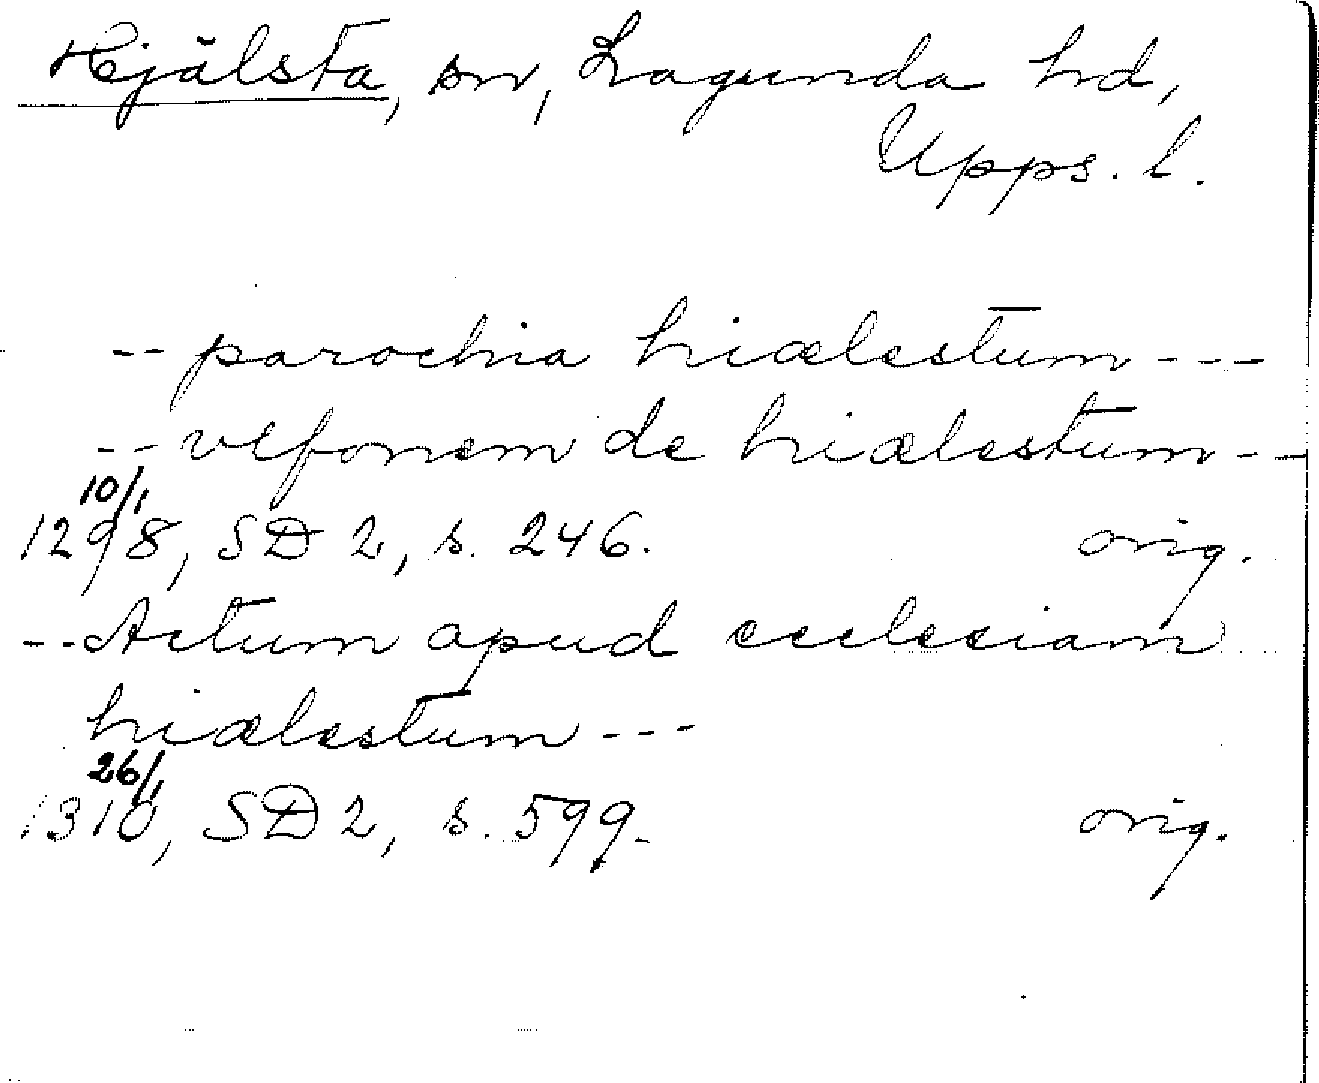 Hjälsta, sn, Lagunda hd,
Upps. l.
-- parochia hiælestum ---
-- vlfonem de hiælestum --
10/1
1298, SD 2, s. 246. orig.
-- Actum apud ecclesiam
hiælestum ---
26/1
1310, SD 2, s. 599. orig.